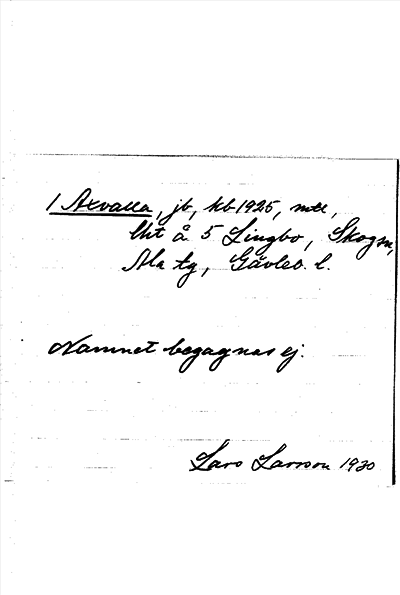 1 Axvalla, jb, kb 1925, mtl,
lht å 5 Lingbo, Skogsn,
Ala tg, Gävleb. l.
Namnet begagnas ej.
Lars Larsson 1930